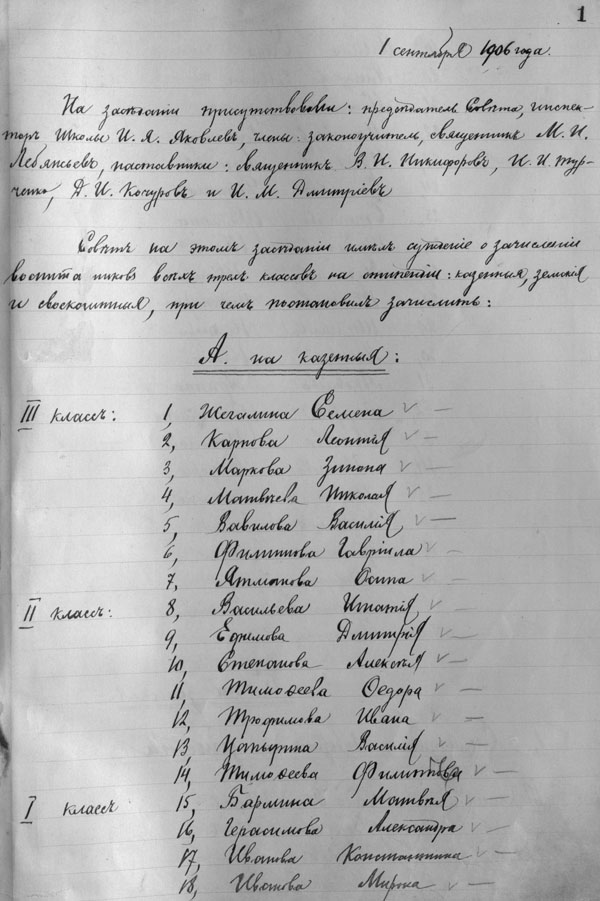 1
1 сентября 1906 года.
На засѣданіи присутствовали: предсѣдатель Совѣта, инспек-
торъ школы И. Я. Яковлевъ, члены: законоучитель, священникъ М. И.
Лебяжьевъ, наставники: священникъ В. Н. Никифоровъ, Н. И. Тур-
ченко, Д. И. Кочуровъ и И. М. Дмитріевъ
Совѣтъ на этомъ засѣданіи имѣлъ сужденіе о зачисленіи
воспитанниковъ всѣхъ трехъ классовъ на стипендіи: казенныя, земскія
и своекоштныя, при чемъ постановилъ зачислить:
А. на казенныя:
III классъ: 1, Жегалина Семена
2, Карпова Леонтія
3, Маркова Зинона
4, Матвѣева Николая
5, Вавилова Василія
6, Филиппова Гавріила
7, Ятманова Осипа
II классъ: 8, Васильева Игнатія
9, Ефимова Дмитрія
10, Степанова Алексѣя
11, Тимоѳеева Ѳедора
12, Трофимова Ивана
13, Василія
14, Тимоѳеева Филиппа
I классъ 15, Бармина Матвѣя
16, Герасимова Александра
17, Иванова Константина
18, Иванова Мирона